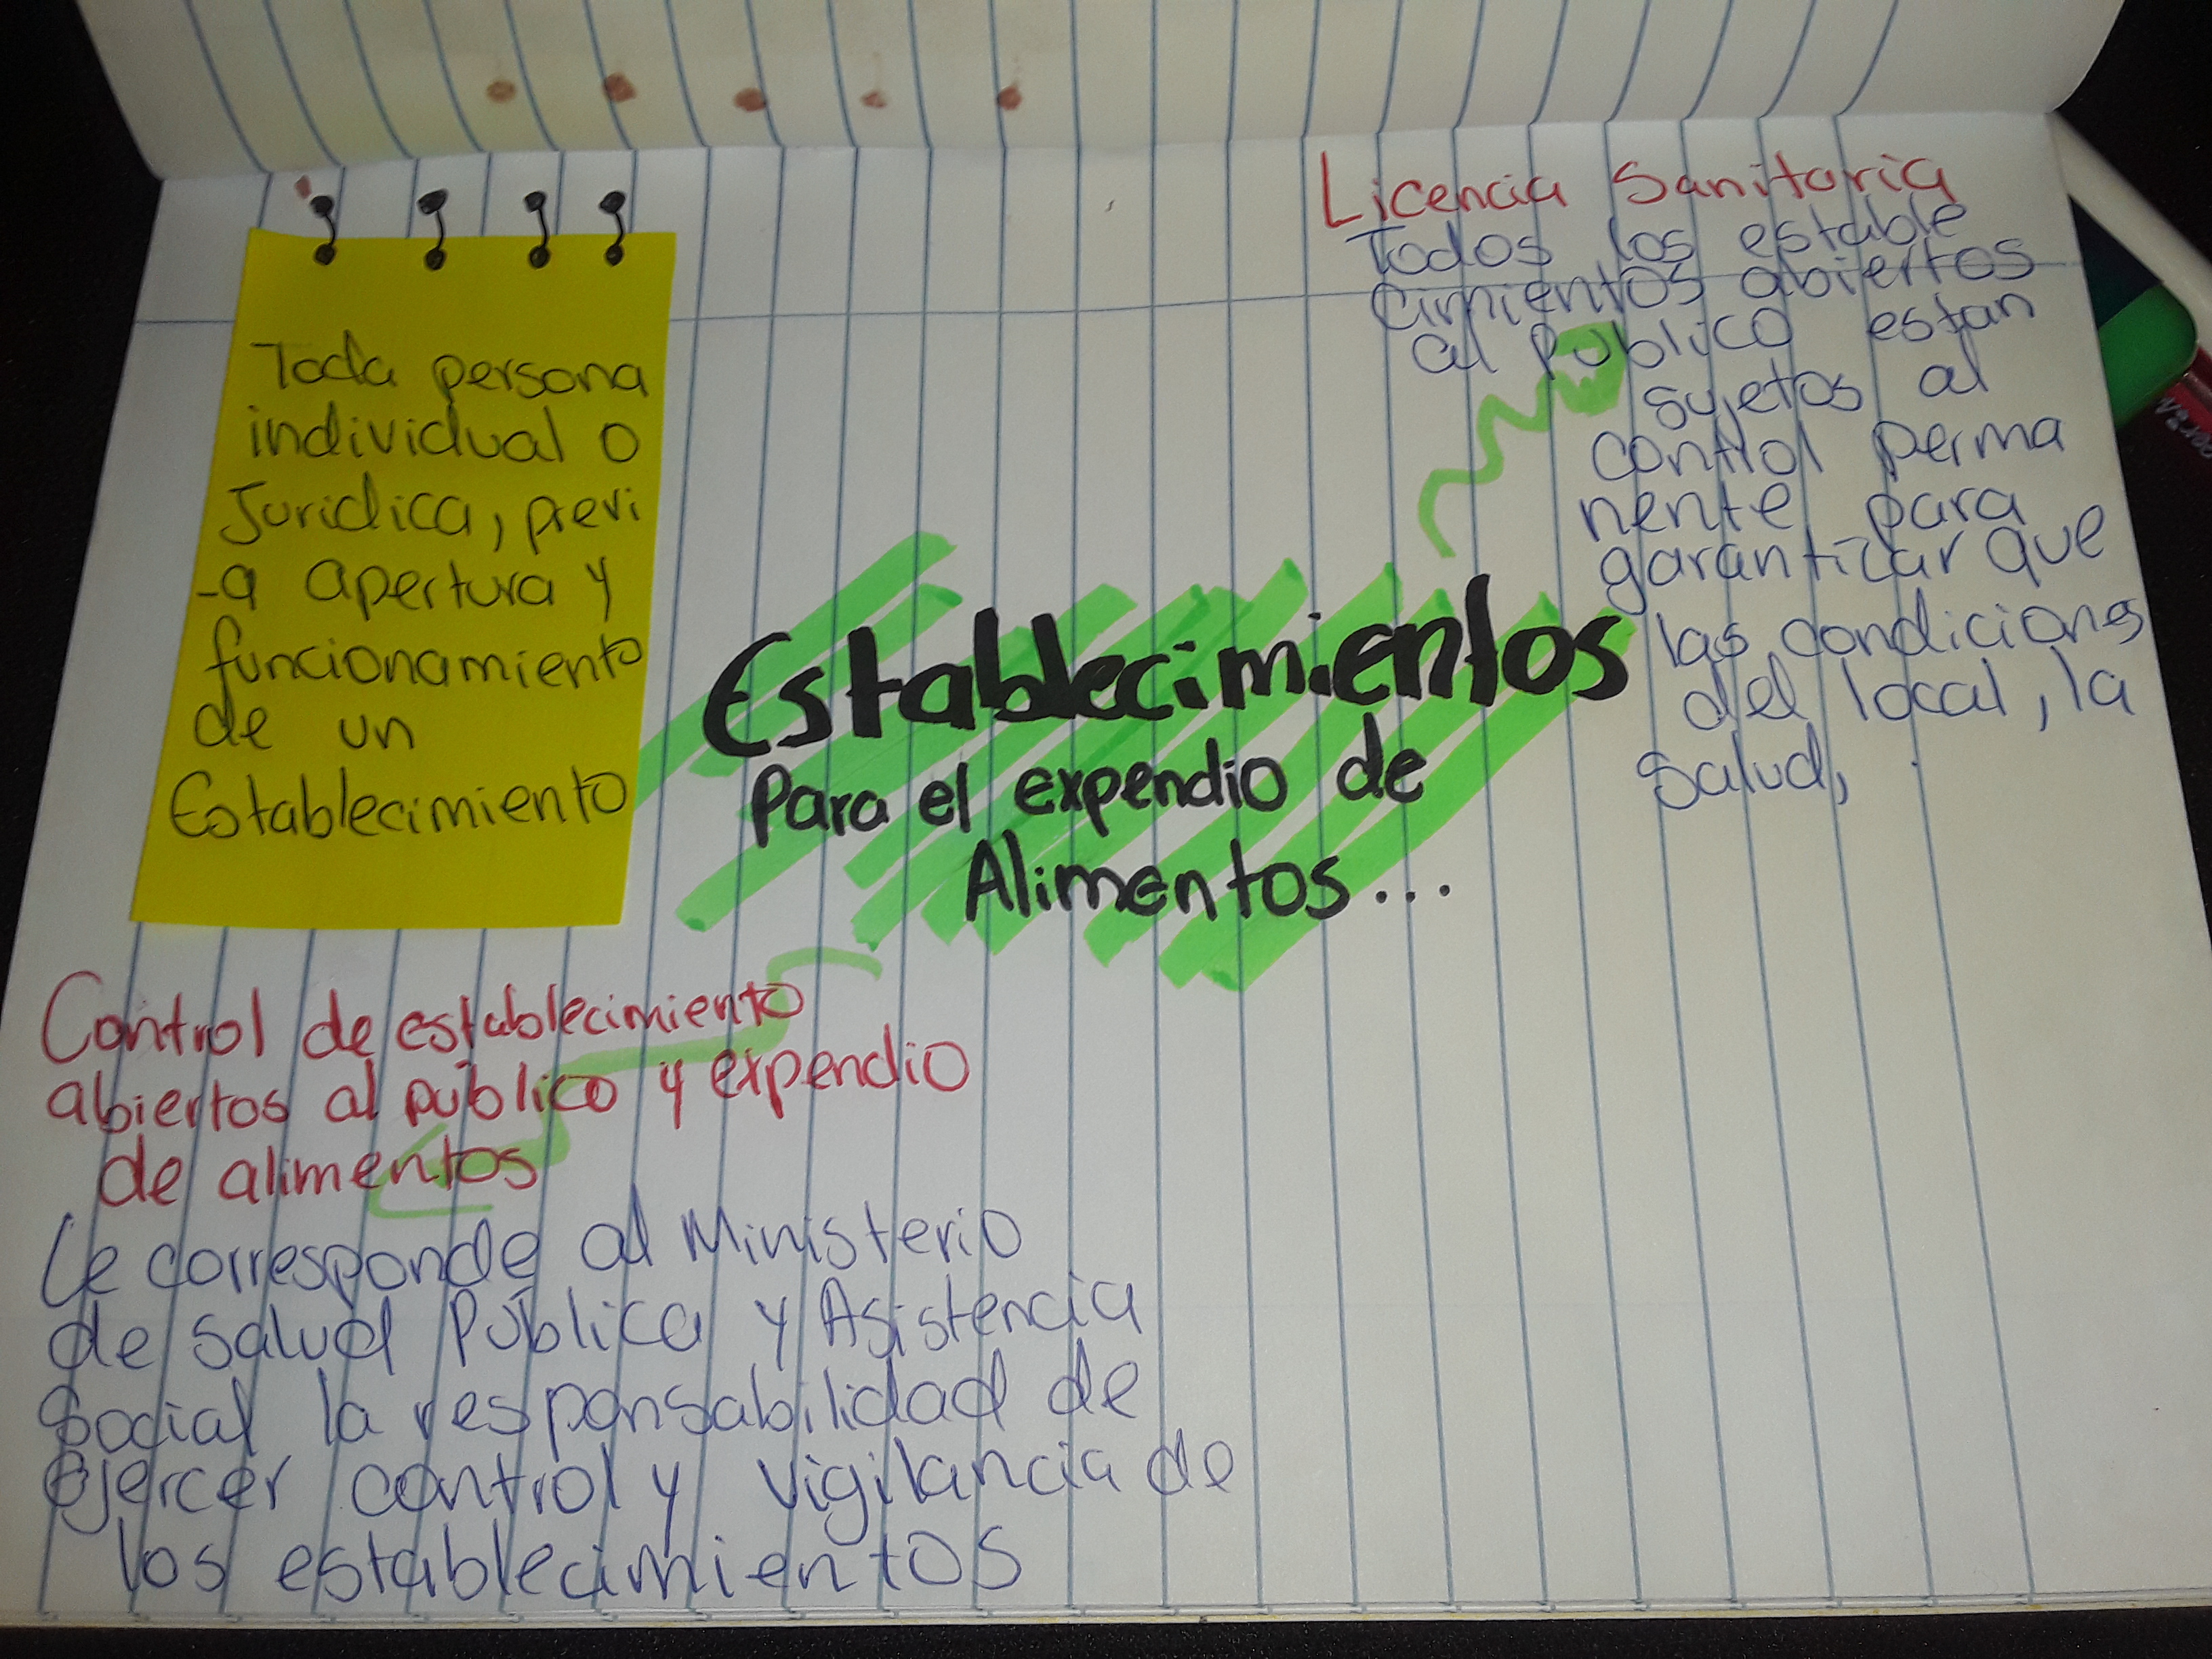 Toda persona
individual o
Juridica, previ
-a apertura y
funcionamiento
de un
Establecimiento
Licencia Sanitaria
Todos los estable
cimientos abiertos
al publico estan
sujetos al
control perma
nente para
garantizar que
las condiciones
del local, la
salud,
Establecimientos
Para el expendio de
Alimentos...
Control de establecimiento
abiertos al público y expendio
de alimentos
Le corresponde al Ministerio
de salud Pública y Asistencia
Social la responsabilidad de
ejercer control y vigilancia de
los establecimientos